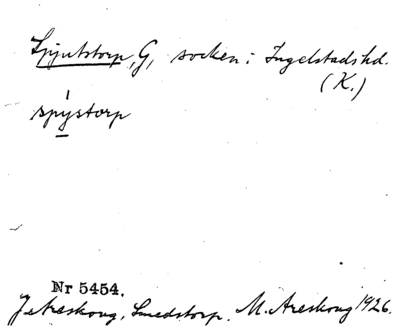 Spjutstorp, G, socken i Ingelstads hd.
(K.)
spýstorp
Nr 5454.
J. Areskoug, Smedstorp. M. Areskoug 1926.